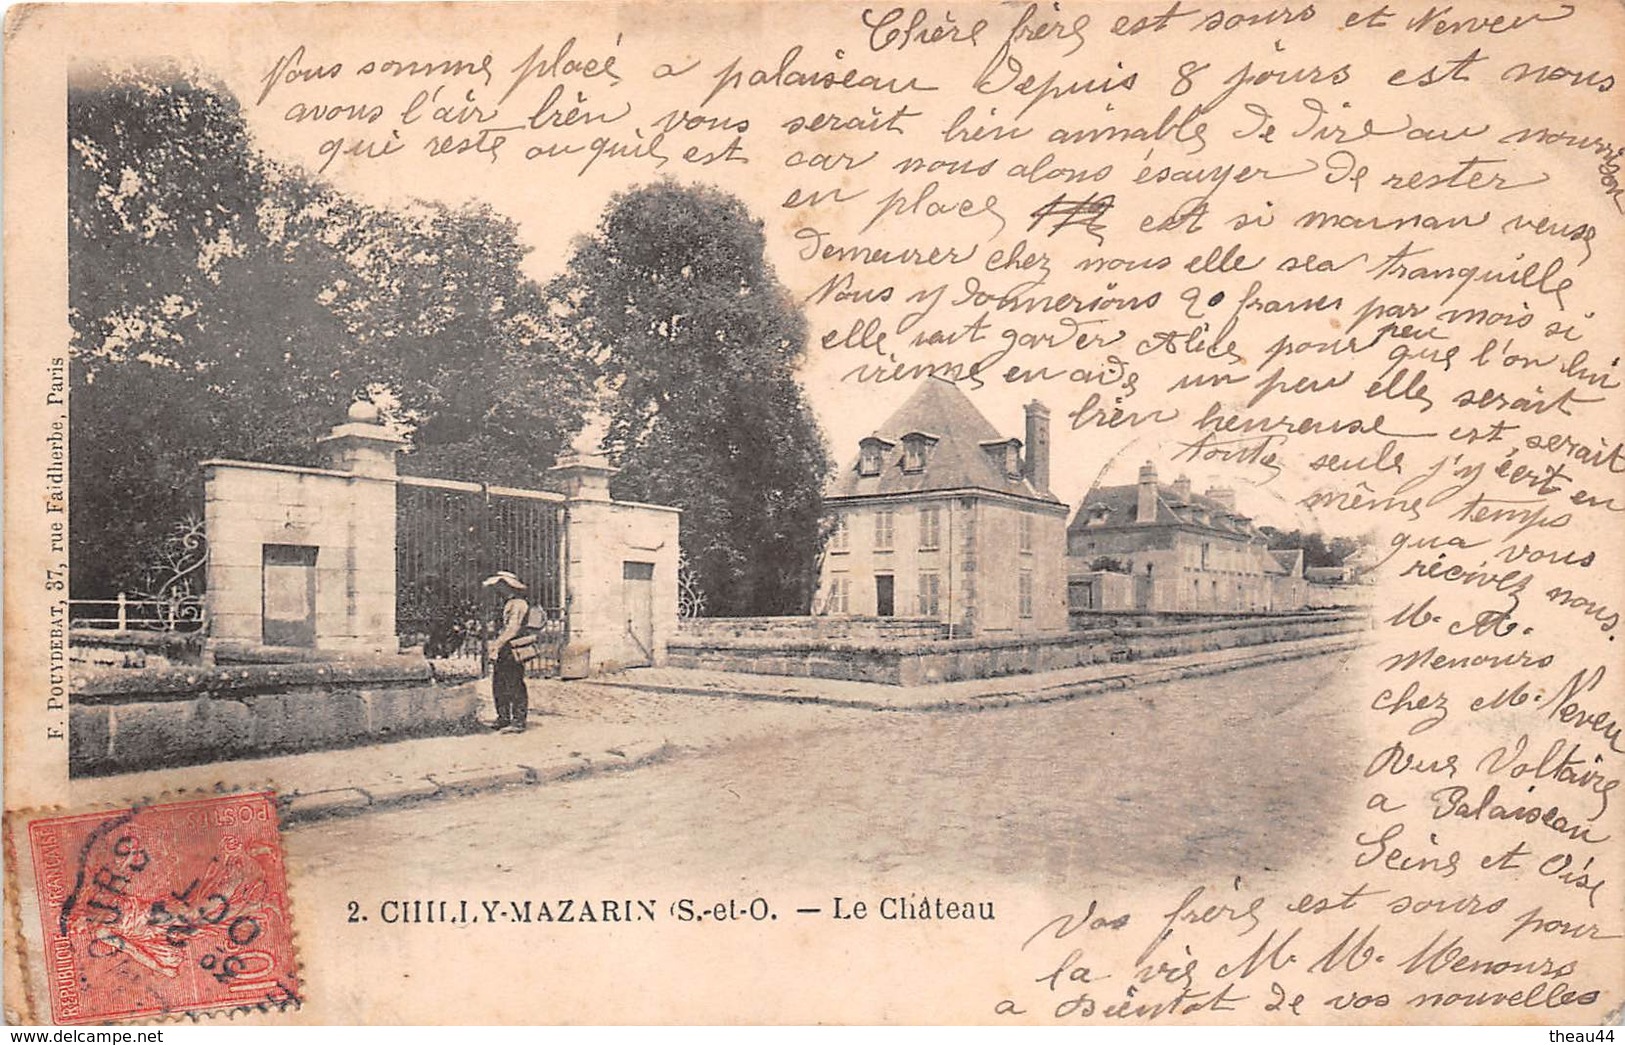 Chière frère est sours et Neveu
Nous somme placé a palaiseau Depuis 8 jours est nous
avons l'air bièn vous serait bièn aimable De Dire au nourrison
qui reste ou quil est car nous alons ésayer De rester
en place est si maman veuse
Demeurer chez nous elle sea tranquille
Nous y donnerions 20 francs par mois si
elle vait garder Alice pour peu que l'on lui
vienne en aide un peu elle serait
bièn heureuse est serait
toute seule j'y écrit en
même temps
qua vous
récivez nous.
M. M.
Menours
chez M. Neveu
Rue Voltaire
a Palaiseau
Seine et Oise
Vos frère est sours pour
la vie M. M. Menours
a Bièntot de vos nouvelles
F. POUYDEBAT, 37, rue Faidherbe, Paris
2. CHILLY-MAZARIN (S.-et-O. — Le Château
REPUBLIQUE FRANÇAISE
POSTES
10
OCT
theau44